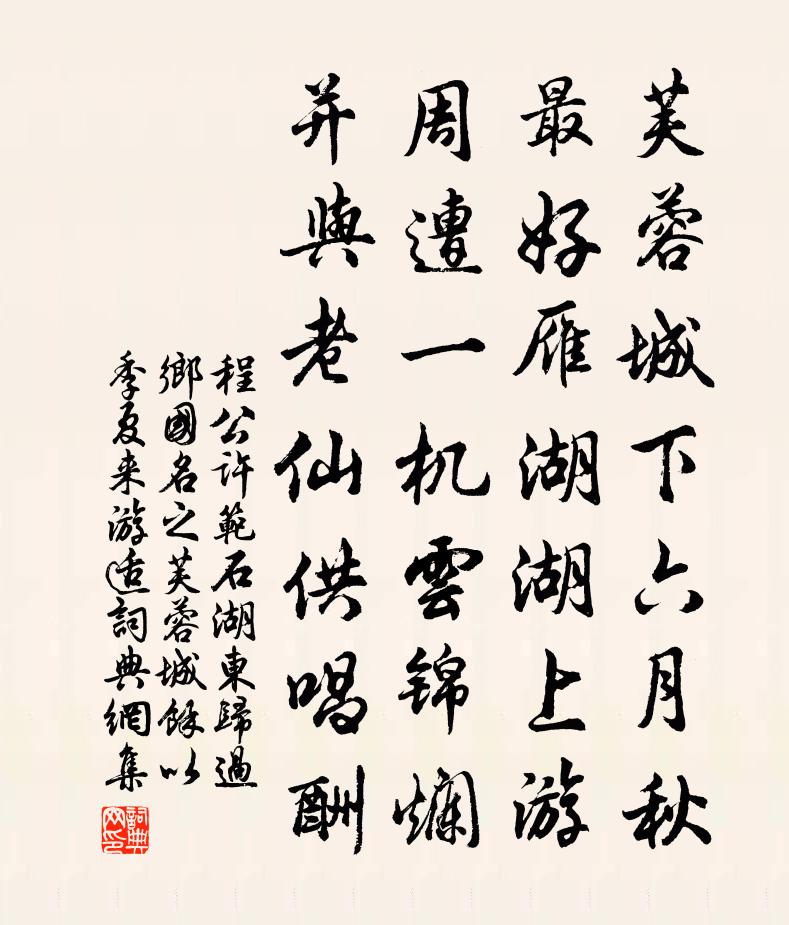 芙蓉城下六月秋
最好雁湖湖上游
周遭一机雲锦爛
并與老仙供唱酬
程公许範石湖東歸過
鄉國名之芙蓉城餘以
季夏来游适詞典網集
詞典網印